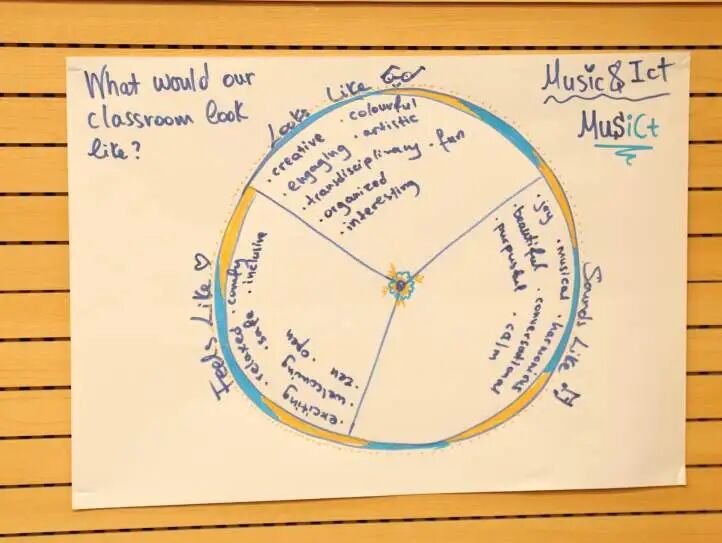 What would our
classroom look
like?
Music & Ict
MusiCt
Looks Like
• creative • colourful
• engaging • artistic
• transdisciplinary • fun
• organized
• interesting
Sounds Like
• joy • musical • harmonious
• beautiful • conversational
• purposful • calm
Feels Like
• relaxed • comfy
• safe • inclusive
• exciting
• welcoming • open
• zen